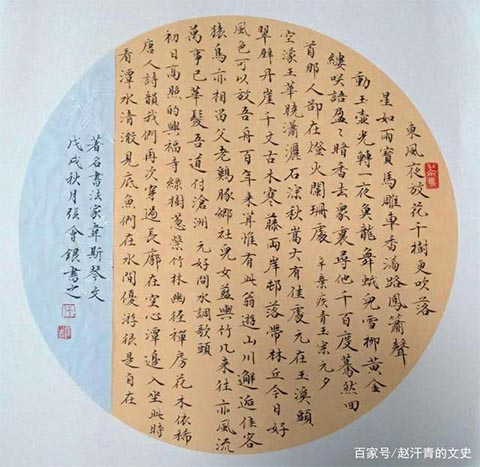 東風夜放花千樹更吹落
星如雨寶馬雕車香滿路鳳簫聲
動玉壺光轉一夜魚龍舞蛾兒雪柳黃金
縷咲語盈〻暗香去衆裏尋他千百度驀然回
首那人却在燈火闌珊處 辛棄疾青玉案元夕
空濛玉華曉瀟灑石淙秋嵩大有佳處元在玉溪頭
翠壁丹崖千丈古木寒藤兩岸邨落帶林丘今日好
風色可以放吾舟百年來筭惟有此翁遊山川邂逅佳客
猿鳥亦相留父老雞豚鄉社兒女藍輿竹几來往亦風流
萬事已華髮吾道付滄洲 元好問水調歌頭
初日高照的興福寺綠樹蔥蘢竹林幽徑禪房花木依稀
唐人詩韻我們再次穿過長廊在空心潭邊入坐此時
看潭水清澈見底魚們在水間優游很是自在
著名書法家韋斯琴文
戊戌秋月張會銀書之
百家号/赵汗青的文史